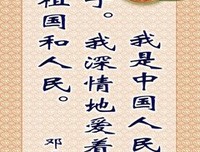 我是中国人民
子。我深情地爱着
祖国和人民。
邓